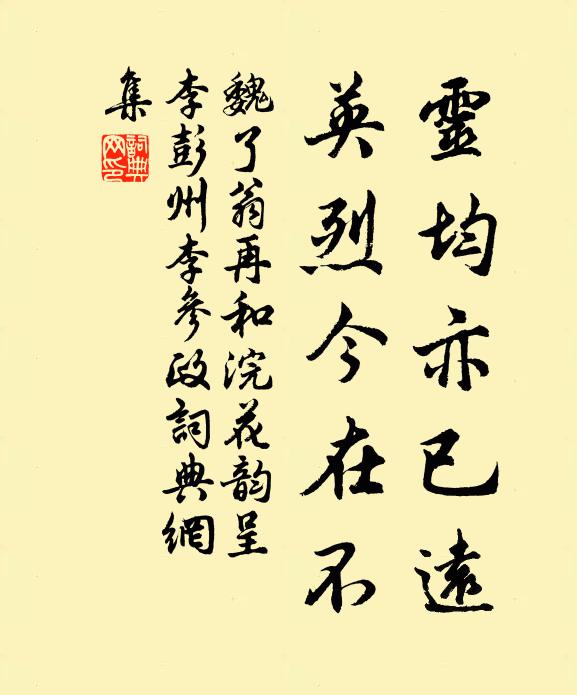 靈均亦已遠
英烈今在不
魏了翁再和浣花韵呈
李彭州李參政詞典網
集
詞典網印